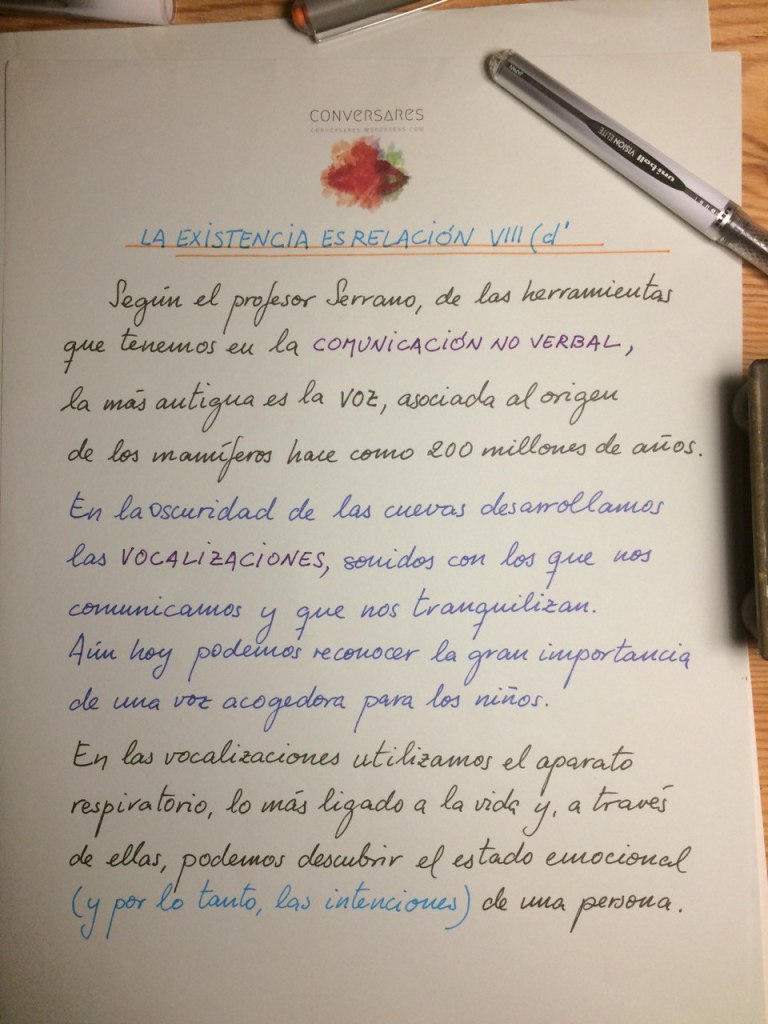 CONVERSARES
CONVERSARES.WORDPRESS.COM
uni-ball VISION ELITE
LA EXISTENCIA ES RELACIÓN VIII (d'
Según el profesor Serrano, de las herramientas
que tenemos en la COMUNICACIÓN NO VERBAL,
la más antigua es la VOZ, asociada al origen
de los mamíferos hace como 200 millones de años.
En la oscuridad de las cuevas desarrollamos
las VOCALIZACIONES, sonidos con los que nos
comunicamos y que nos tranquilizan.
Aún hoy podemos reconocer la gran importancia
de una voz acogedora para los niños.
En las vocalizaciones utilizamos el aparato
respiratorio, lo más ligado a la vida y, a través
de ellas, podemos descubrir el estado emocional
(y por lo tanto, las intenciones) de una persona.